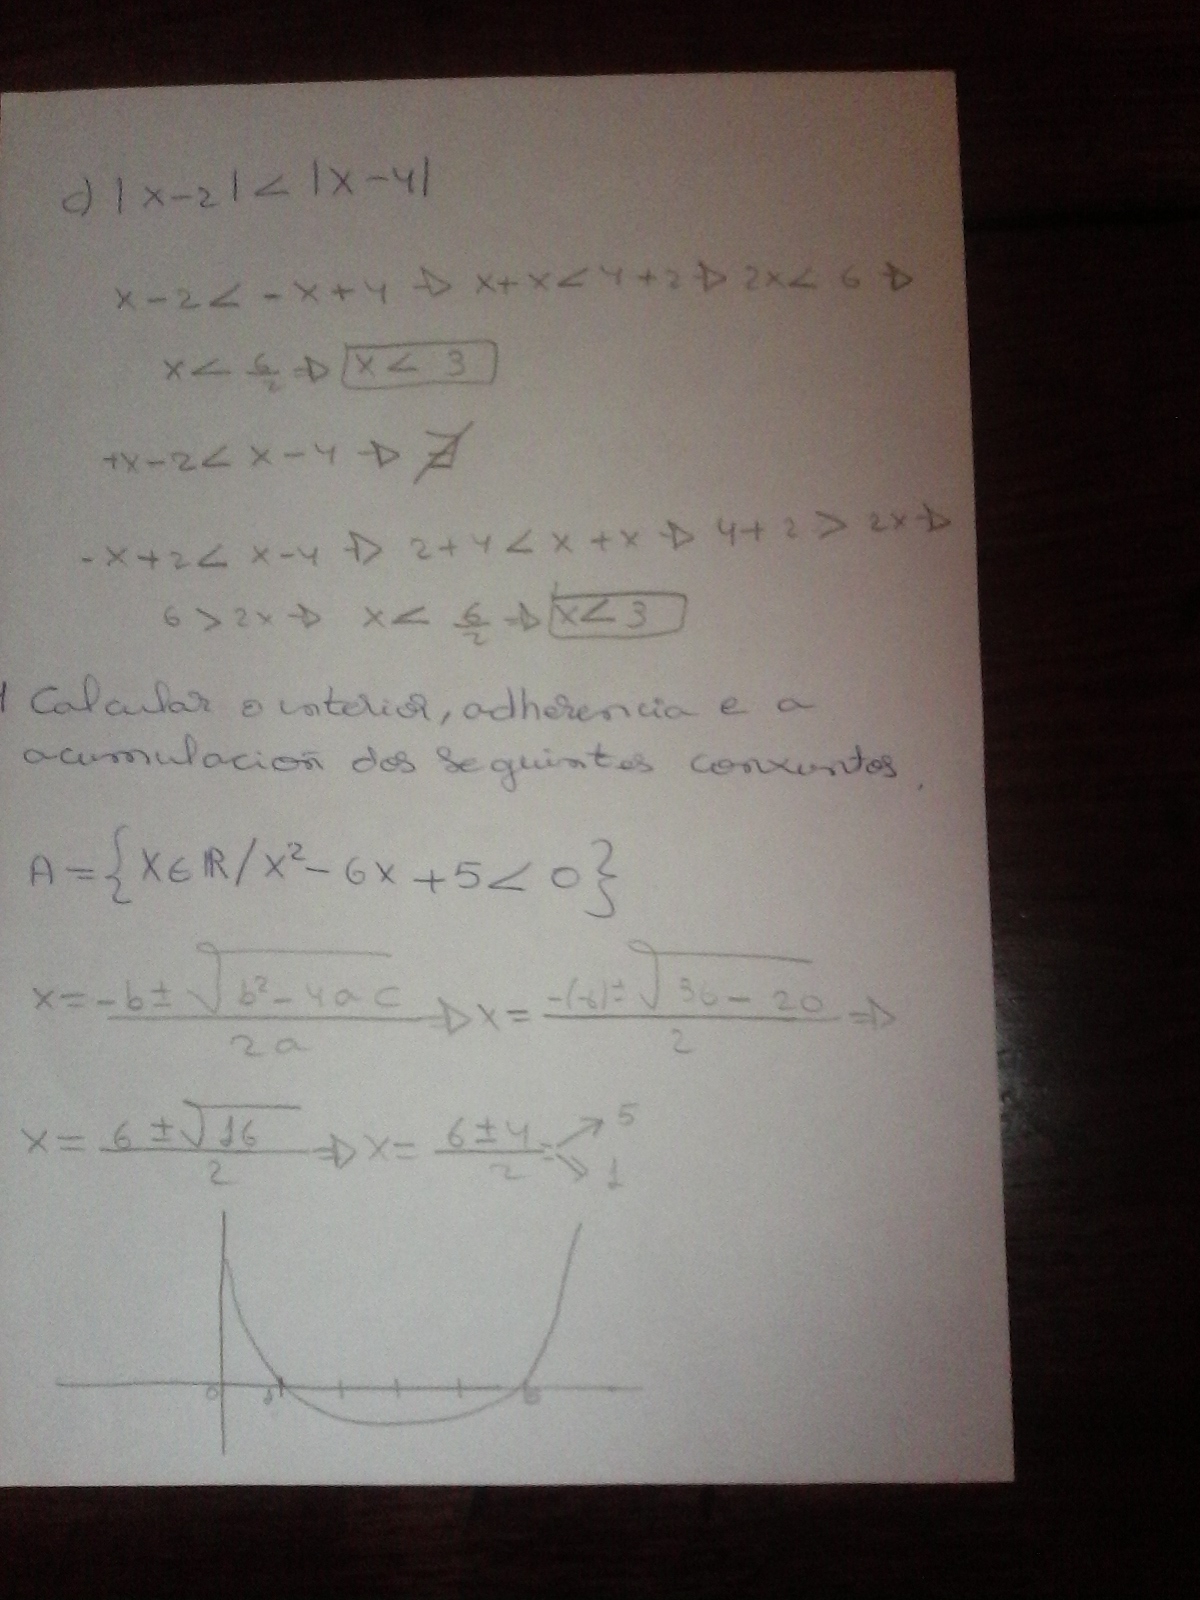 c) |x-2| < |x-4|
x-2 < -x+4 ⇒ x+x < 4+2 ⇒ 2x < 6 ⇒
x < 6/2 ⇒ x < 3
+x-2 < x-4 ⇒ ∄
-x+2 < x-4 ⇒ 2+4 < x+x ⇒ 4+2 > 2x ⇒
6 > 2x ⇒ x < 6/2 ⇒ x < 3
Calcular o interior, adherencia e a
acumulación dos seguintes conxuntos.
A = {x∈ℝ/x²-6x+5<0}
x = -b±√b²-4ac / 2a ⇒ x = -(-6)±√36-20 / 2 ⇒
x = 6±√16 / 2 ⇒ x = 6±4 / 2 = 5
1
0 1 5